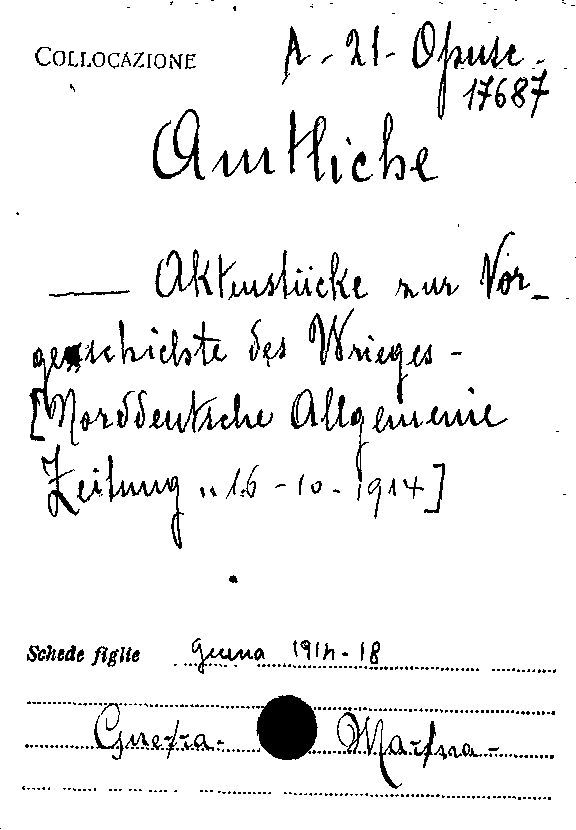 COLLOCAZIONE A - 21 - Opusc.
17687
Amtliche
— Aktenstücke zur Vor-
geschichte des Krieges -
[Norddeutsche Allgemeine
Zeitung „ 16 - 10 - 1914]
Schede figlie guerra 1914-18
Guerra - Marina -